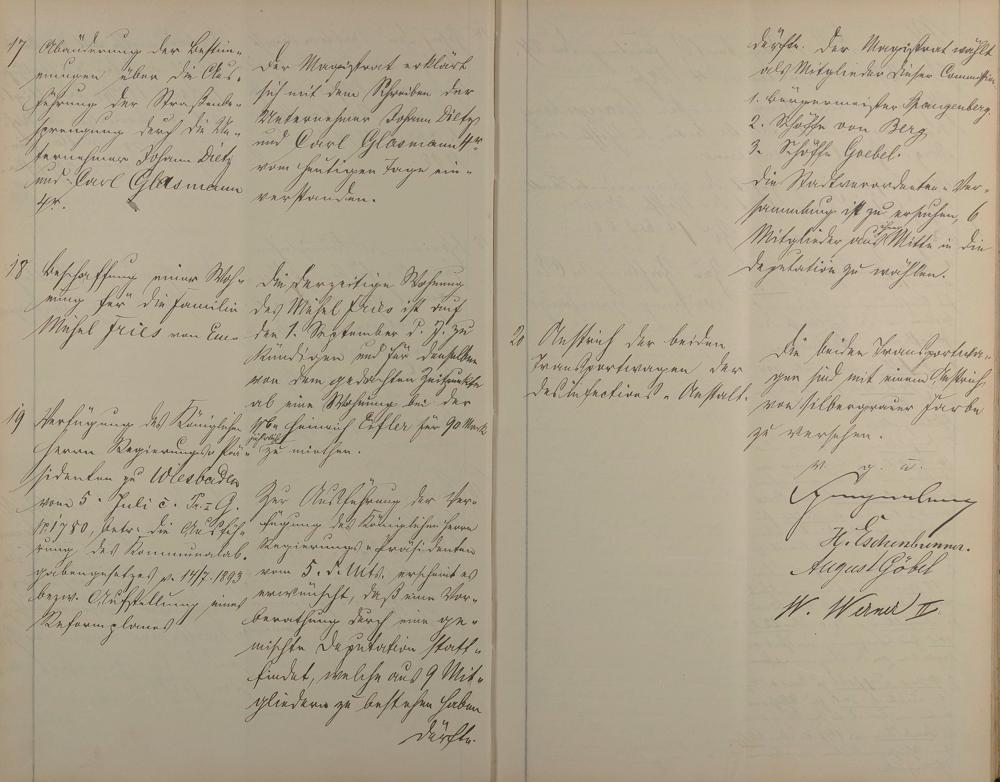 17 Abänderung der Bestim-
mungen über die Aus-
führung der Straßenbe-
sprengung durch die Un-
ternehmer Johann Dietz
und Carl Glasmann
4r.
Der Magistrat erklärt
sich mit dem Schreiben der
Unternehmer Johann Dietz
und Carl Glasmann 4r
vom heutigen Tage ein-
verstanden.
18 Beschaffung einer Woh-
nung für die Familie
Michel Fries von Em-
Die derzeitige Wohnung
des Michel Fries ist auf
den 1. September d. J. zu
kündigen und für denselben
von dem gedachten Zeitpunkte
ab eine Wohnung bei der
Wwe Heinrich Eifler für 90 Mark
jährlich zu miethen.
19 Verfügung des Königlichen
Herrn Regierungs-Prä-
sidenten zu Wiesbaden
vom 5. Juli c. Pr. I G.
N. 1780, betr. die Ausfüh-
rung des Kommunalab-
gabengesetzes v. 14/7. 1893
bezw. Aufstellung eines
Reformplanes
Zur Ausführung der Ver-
fügung des Königlichen Herrn
Regierungs-Präsidenten
vom 5. d. Mts. erscheint es
erwünscht, daß eine Vor-
berathung durch eine ge-
mischte Deputation statt-
findet, welche aus 9 Mit-
gliedern zu bestehen haben
dürfte.
dürfte. Der Magistrat wählt
als Mitglieder dieser Commission
1. Bürgermeister Spangenberg
2. Schöffe von Berg
3. Schöffe Goebel.
Die Stadtverordneten-Ver-
sammlung ist zu ersuchen, 6
Mitglieder aus ihrer Mitte in die
Deputation zu wählen.
20 Anstrich der beiden
Transportwagen der
Desinfections-Anstalt.
Die beiden Transportwa-
gen sind mit einem Anstrich
von silbergrauer Farbe
zu versehen.
v. g. u.
H. Eschenbrenner.
August Göbel
W. Werner II